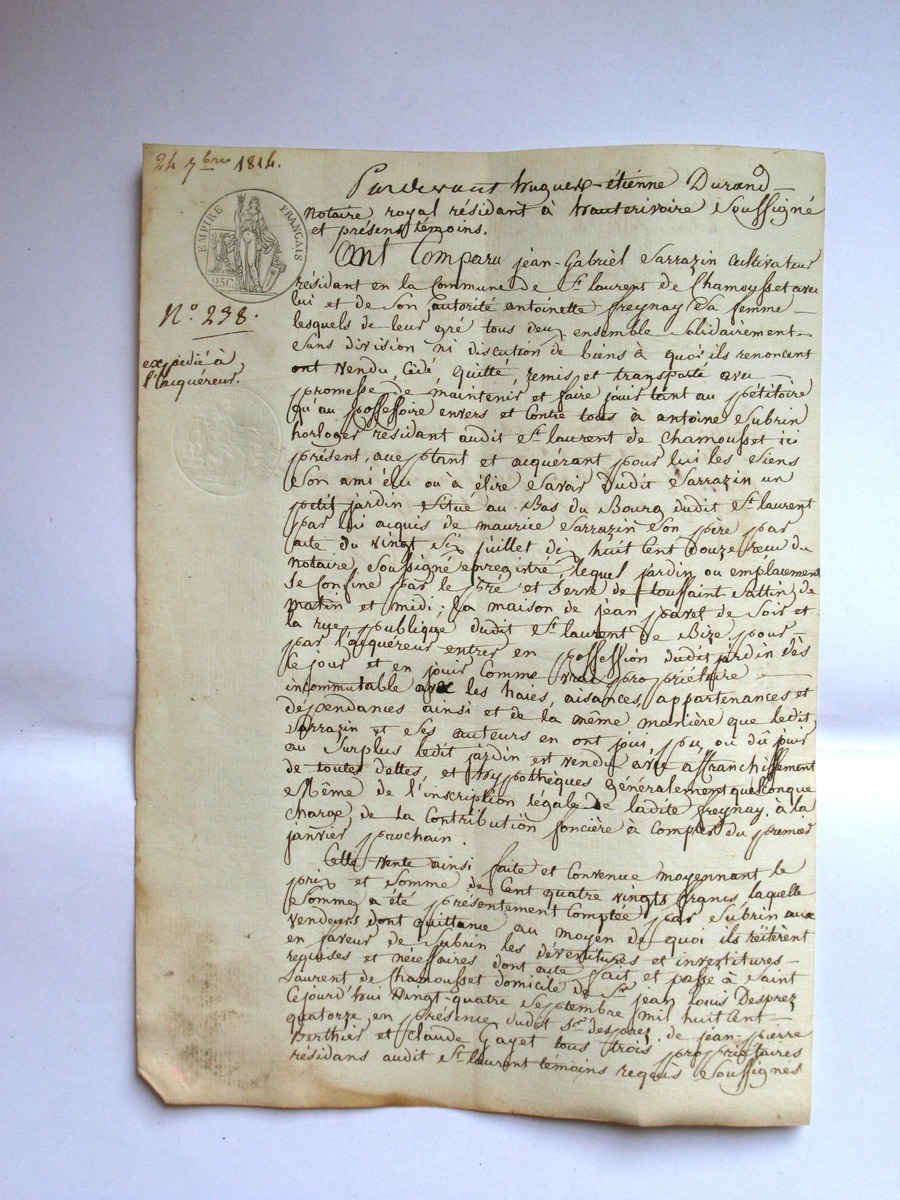 24 7bre 1814.
EMPIRE FRANÇAIS
25C.
N.° 238.
expedié à
l'acquéreur.
Pardevant hugues-étienne Durand
notaire royal résidant à hauterivoire Soussigné
et présens témoins.
Ont Comparu jean-Gabriël Sarrazin Cultivateur
résidant en la Commune de St. laurent de Chamousset avec
lui et de Son autorité antoinette freynay Sa femme
lesquels de leur gré tous deux ensemble Solidairement
Sans division ni discution de biens à quoi ils renoncent
ont vendu, Cédé, quitté, remis et transporté avec
promesse de maintenir et faire jouir tant au pétitoire
qu'au possessoire envers et Contre tous à antoine Subrin
horloger résidant audit St. laurent de Chamousset ici
présent, acceptant et acquérant pour lui les Siens
Son ami élu ou à élire Savoir dudit Sarrazin un
petit jardin Situé au Bas du Bourg dudit St. laurent
par lui acquis de maurice Sarrazin Son père par
acte du vingt Six juillet dix huit Cent douze reçu du
notaire Soussigné enregistré, lequel jardin ou emplacement
Se Confine par le pré et Serve de toussaint Sattin de
matin et midi; la maison de jean de Soir et
la rue publique dudit St. laurent de Bize. pour
par l'acquéreur entrer en possession dudit jardin dès
le jour et en jouir Comme vrai propriétaire
incommutable avec les haies, aisances, appartenances et
dépendances ainsi et de la même manière que ledit
Sarrazin et Ses auteurs en ont joui, pu, ou dû jouir
au Surplus ledit jardin est vendu avec affranchissement
de toutes dettes, et hypothèques Généralement quelconque
Même de l'inscription légale de ladite freynay, à la
charge de la Contribution foncière à Compter du premier
janvier prochain.
Cette vente ainsi faite et Convenue moyennant le
prix et Somme de Cent quatre vingts francs laquelle
Somme a été présentement Comptée par Subrin aux
vendeurs dont quittance, au moyen de quoi ils réitèrent
en faveur de Subrin les dévestitures et investitures
requises et nécessaires dont acte fait et passé à Saint
Laurent de Chamousset domicile de Sr. jean louis Desprez
Cejourd'hui Vingt-quatre Septembre mil huit Cent
quatorze, en présence dudit Sr. desprez, de jean-pierre
Berthier et Claude Gayet tous trois propriétaires
résidans audit St. laurent témoins requis Soussignés